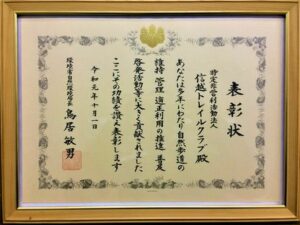 表彰状
特定非営利活動法人
信越トレイルクラブ殿
あなたは多年にわたり自然歩道の
維持管理 適正利用の推進 普及
啓発活動等に大きく貢献されました
ここにその功績を讃え表彰します
令和元年十月一日
環境省自然環境局長 鳥居敏男